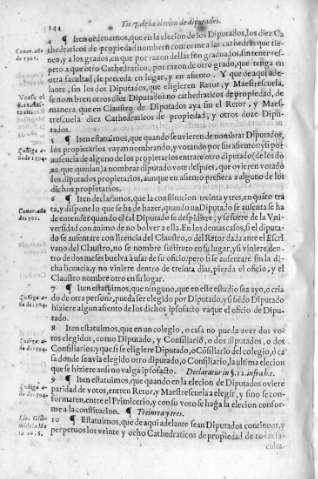 144 Tit. 7. de la elecion de diputados.
¶ Iten ordenamos, que en la elecion de los Diputados, los diez Ca
thedraticos de propiedad nombren conforme a las cathedras que tie-
nen, y a los grados, en que por razon dellas son graduados, sin tener res-
pecto a que otro Cathedratico, por razon de otro grado, que tenga en
otra facultad, le preceda en lugar, y en asiento. Y que de aqui ade-
lante, sin los dos Diputados, que eligieren Retor, y Maestrescuela,
se nombren otros diez Diputados no cathedraticos de propiedad, de
manera que en Claustro de Diputados aya sin el Retor, y Maes-
trescuela diez Cathedraticos de propiedad, y otros doze Dipu-
tados.
5 ¶ Iten estatuimos, que quando se uvieren de nombrar Diputados,
los propietarios vayan nombrando, y votando por su asiento: y si por
ausencia de alguno de los propietarios entrare otro diputado (de los do
ze, que quedan) a nombrar diputado vote despues, que ovieren votado
los diputados propietarios, aunque en asiento prefiera a alguno de los
dichos propietarios.
6 ¶ Iten declaramos, que la constitucion treinta y tres, en quãto tra
ta, y dispone lo que se ha de hazer, quando un Diputado se ausenta se ha
de entender quando el tal Diputado se despidiere, y se fuere de la Vni-
versidad con animo de no bolver a ella. En los demas casos, si el diputa-
do se ausentare con licencia del Claustro, o del Retor dada ante el Escri-
vano del Claustro, no se nombre sustituto en su lugar, y si viniere, den-
tro de dos meses buelva à usar de su oficio, pero si se ausentare sin la di-
cha licencia, y no viniere dentro de treinta dias, pierda el oficio, y el
Claustro nombre otro en su lugar.
7 ¶ Iten estatuimos, que ninguno, que en este estudio sea ayo, o cria
do de otra persona, pueda ser elegido por Diputado, y si siẽdo Diputado
hiziere algun asiento de los dichos ipso facto vaque el oficio de Dipu-
tado.
8 Iten estatuimos, que en un colegio, o casa no pueda aver dos vo-
tos elegidos, como Diputado, y Consiliario, o dos diputados, o dos
Consiliarios: y que si se eligiere Diputado, o Consiliario del colegio, ò ca
sa donde sea via elegido otro diputado, o Consiliario, la ultima eleccion
que se hiziere ansi no valga ipso facto. Declaratur in §. 12. infra hic.
9 ¶ Iten estatuimos, que quando en la elecion de Diputados oviere
paridad de votos, entren Retor, y Maestrescuela a elegir, y sino se con-
formaren, entre el Primicerio, y con su voto se haga la elecion confor-
me a la constitucion. ¶ Treinta y tres.
10 ¶ Estatuimos, que de aqui adelante sean Diputados continuos, y
perpetuos los veinte y ocho Cathedraticos de propiedad de todas fa-
culta-